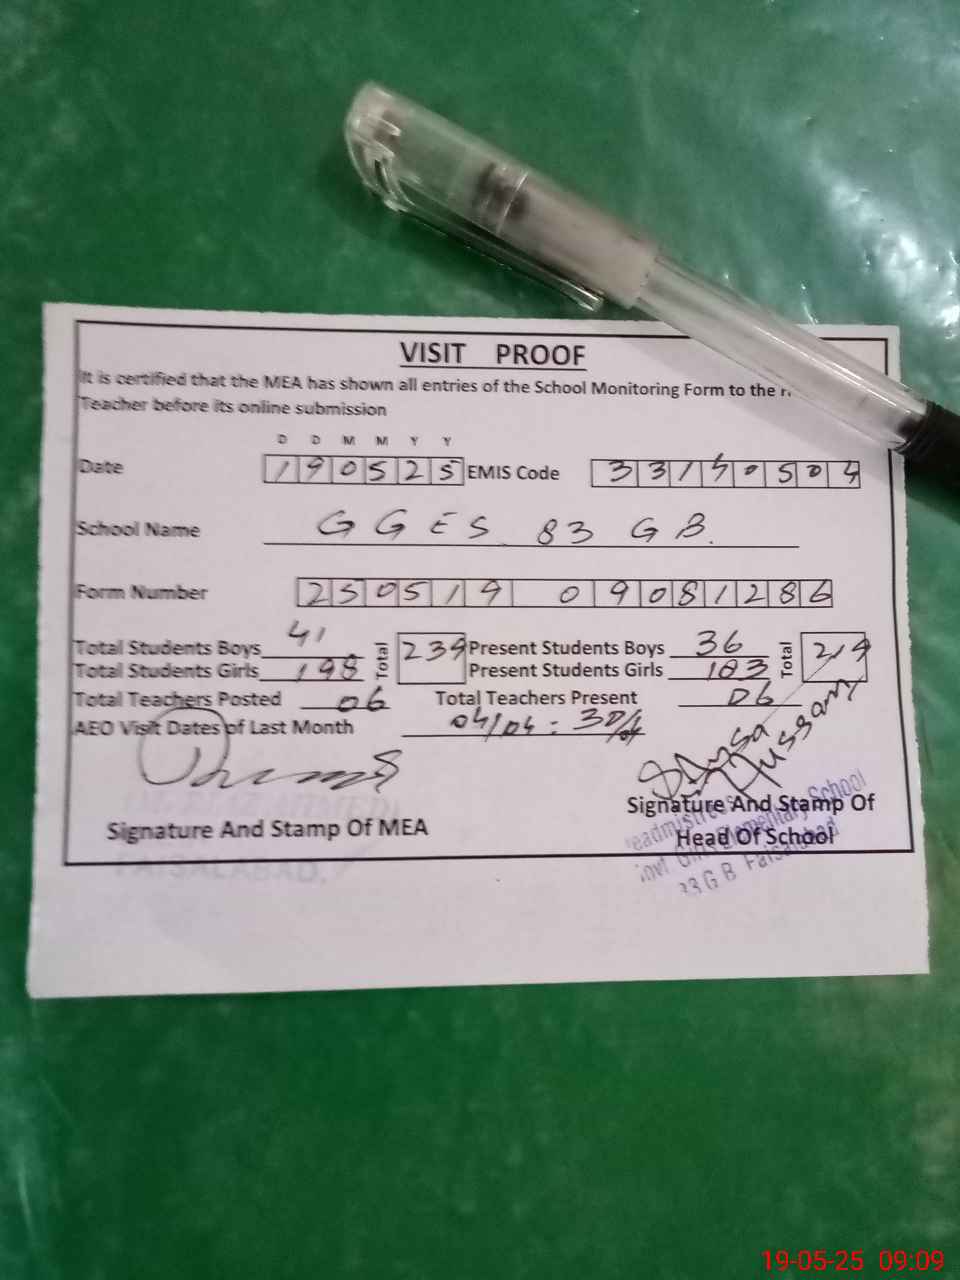 VISIT PROOF
It is certified that the MEA has shown all entries of the School Monitoring Form to the
Teacher before its online submission
D D M M Y Y
Date 190525 EMIS Code 33140504
School Name GGES 83 GB.
Form Number 250519 09081286
Total Students Boys 41 Total 239 Present Students Boys 36 Total 219
Total Students Girls 198 Present Students Girls 183
Total Teachers Posted 06 Total Teachers Present 06
AEO Visit Dates of Last Month 04/04 : 30/04
Signature And Stamp Of MEA
Signature And Stamp Of
Head Of School
Elementary School
GB Faisalabad
FAISALABAD.
19-05-25 09:09